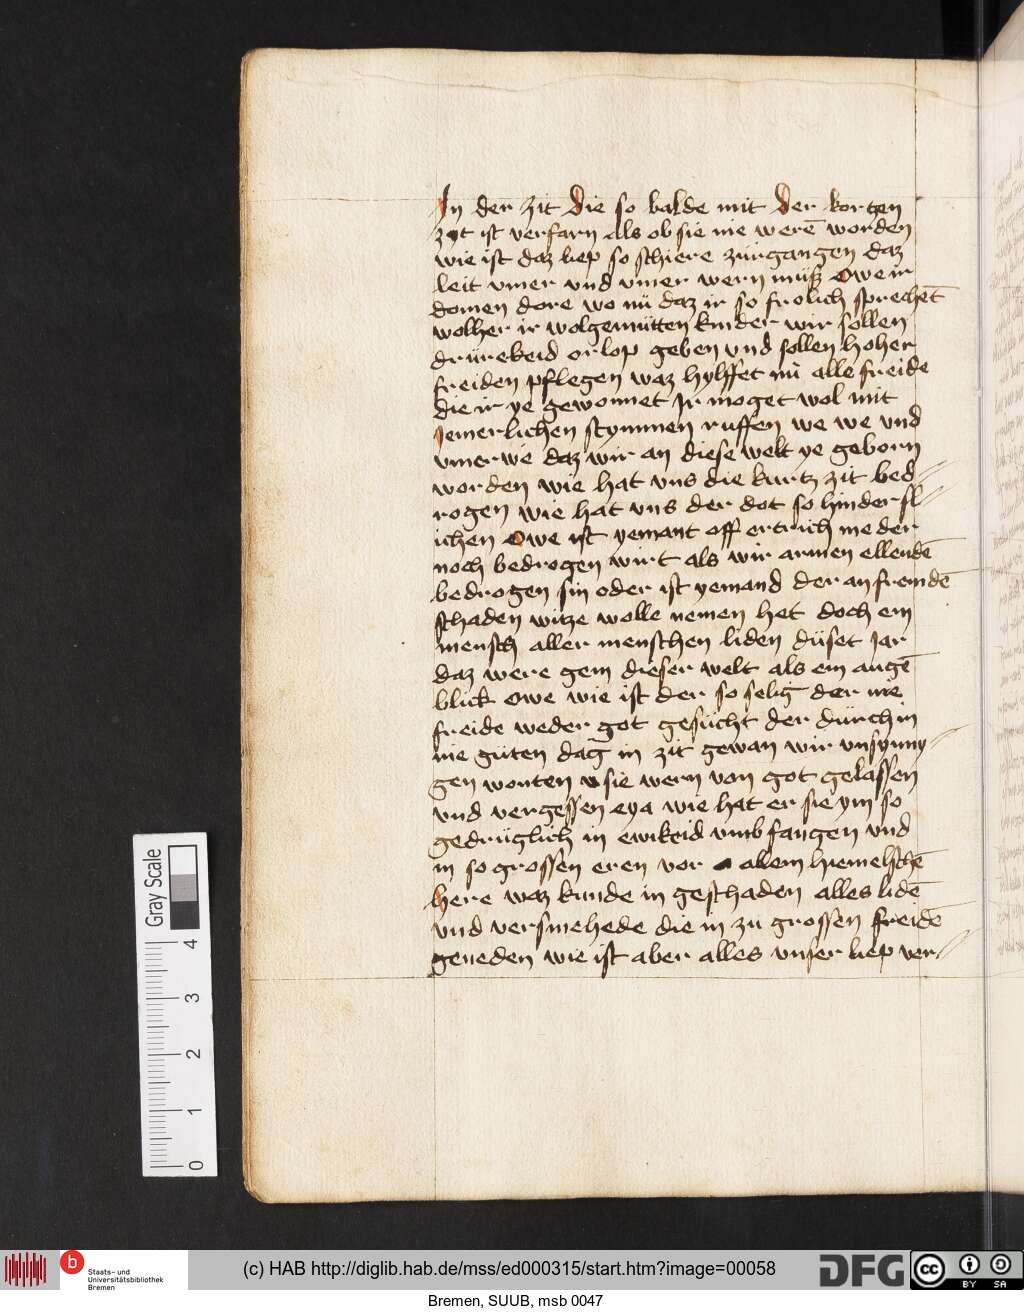 In der zit die so balde mit der kortzen
zyt ist verfarn als ob sie nie werē worden
wie ist daz liep so schiere zurgangen daz
leit vmer vnd vmer wern muß Owe ir
domen dore wo nü daz ir so frolich sprechēt
wolher ir wolgemütten kinder wir sollen
drürekeid orlop geben vnd sollen hoher
freiden pflegen waz hylffet nü alle freide
die ir ye gewonnet Ir moget wol mit
Jemerlichen stymmen ruffen we we vnd
vmer we daz wir an diese welt ye geborn
worden wie hat vns die kurtz zit bed-
rogen wie hat vns der dot so hindersl-
ichen Owe ist yemant off ertrich me der
noch bedrogen wirt als wir armen ellendē
bedrogen sin oder ist yemand der an fremdē
schaden witze wolle nemen het doch ein
mensch aller menschen liden düset Jar
daz were gem dieser welt als ein augē
blick owe wie ist der so selig der nie
freide weder got gesücht der dürch in
nie güten dag in zit gewan wir vnsynny-
gen wonten sie wern von got gelassen
vnd vergessen eya wie hat er sie ym so
gedrüglich in ewikeid vmbfangen vnd
in so grossen eren vor allem hiemelschē
here waz kunde in geschaden alles lidē
vnd versmehede die in zu grossen freidē
geneden wie ist aber alles vnser liep ver-
Gray Scale
4
3
2
1
0
b
Staats- und
Universitätsbibliothek
Bremen
(c) HAB http://diglib.hab.de/mss/ed000315/start.htm?image=00058
DFG
cc
BY
SA
Bremen, SUUB, msb 0047